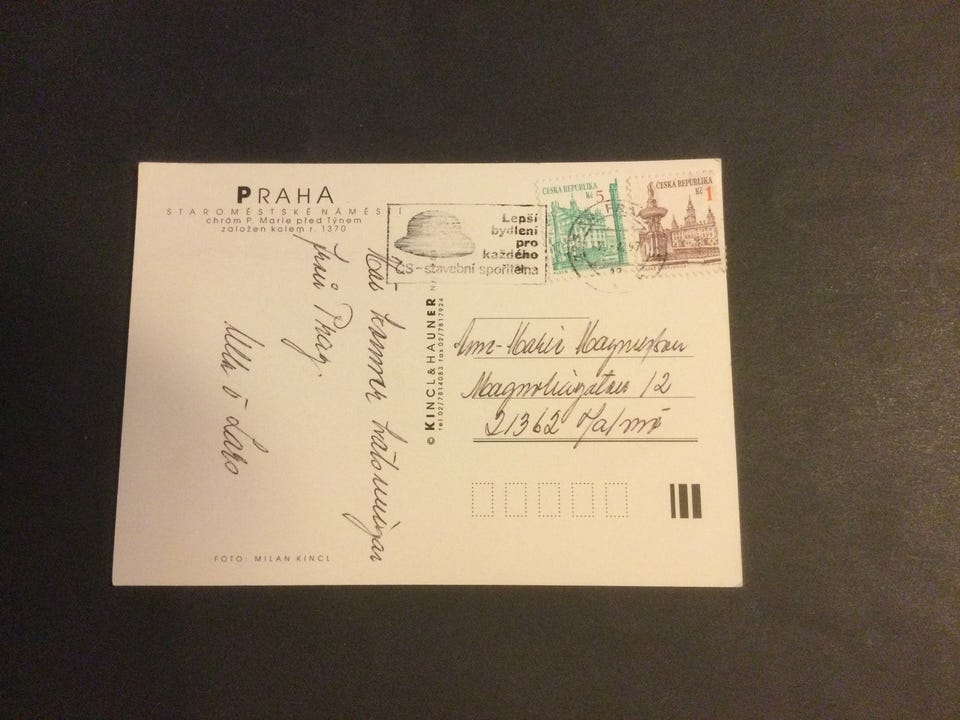 PRAHA
STAROMĚSTSKÉ NÁMĚSTÍ
chrám P. Marie před Týnem
založen kolem r. 1370
Lepší
bydlení
pro
každého
ČS-stavební spořitelna
ČESKÁ REPUBLIKA
Kč 5
ČESKÁ REPUBLIKA
Kč 1
Här kommer
från Prag.
Ulla o Lars
© KINCL & HAUNER
tel 02/7814083 fax 02/7817924
Ann-Marie Magnusson
Magnoliagatan 12
21362 Malmö
FOTO: MILAN KINCL